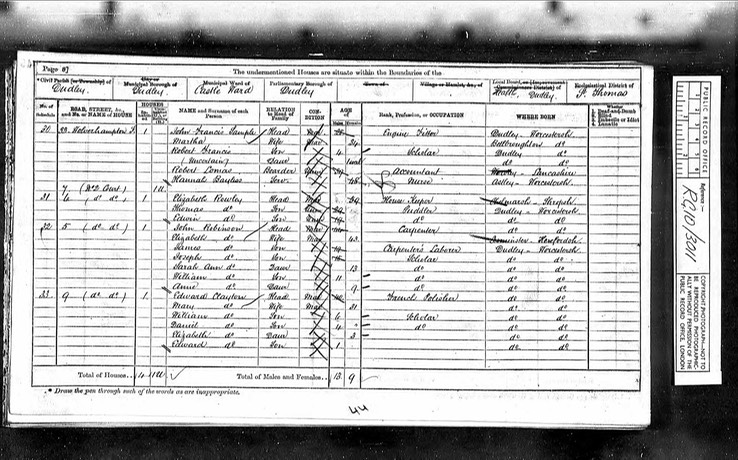 Page 87
The undermentioned Houses are situate within the Boundaries of the
Civil Parish [or Township] of
City or Municipal Borough of
Municipal Ward of
Parliamentary Borough of
Town of
Village or Hamlet, &c., of
Local Board, or [Improvement Commissioners District] of
Ecclesiastical District of
Dudley Dudley Castle Ward Dudley Dudley St Thomas
No. of Schedule
ROAD, STREET, &c., and No. or NAME of HOUSE
HOUSES
NAME and Surname of each Person
RELATION to Head of Family
CONDITION
AGE of
Rank, Profession, or OCCUPATION
WHERE BORN
Whether
1. Deaf-and-Dumb
2. Blind
3. Imbecile or Idiot
4. Lunatic
30 Wolverhampton 1 John Francis Head Engine Fitter Dudley Worcestersh
Martha Wife 34 do
Robert Francis Son 4 Scholar Dudley do
(Uncertain) Daur do do
Robert Lomas Boarder Accountant Lancashire
Hannah Bayliss Serv 45 Nurse Astley Worcestersh
7 (do Court) 1U
31 6 (do do) 1 Elizabeth Rowley Head 39 House Keeper
Thomas do Son Puddler Dudley Worcestersh
Edwin do Son do do do
32 5 (do do) 1 John Robinson Head Carpenter do do
Elizabeth do Wife 43 Leominster Herefordsh
James do Son Carpenter's Laborer Dudley Worcestersh
Joseph do Son Scholar do do
Sarah Ann do Daur 13 do do do
William do Son 11 do do do
Anne do Daur 9 do do do
33 9 (do do) 1 Edward Clayton Head French Polisher do do
Mary do Wife 31 do do
William do Son 6 Scholar do do
Daniel do Son 4 do do do
Elizabeth do Daur 3 do do
Edward do Son 1 do do
Total of Houses 4 1U
Total of Males and Females 13 9
* Draw the pen through such of the words as are inappropriate.
44
PUBLIC RECORD OFFICE
Reference:-
RG10/3011
COPYRIGHT PHOTOGRAPH—NOT TO BE REPRODUCED PHOTOGRAPHICALLY WITHOUT PERMISSION OF THE PUBLIC RECORD OFFICE, LONDON